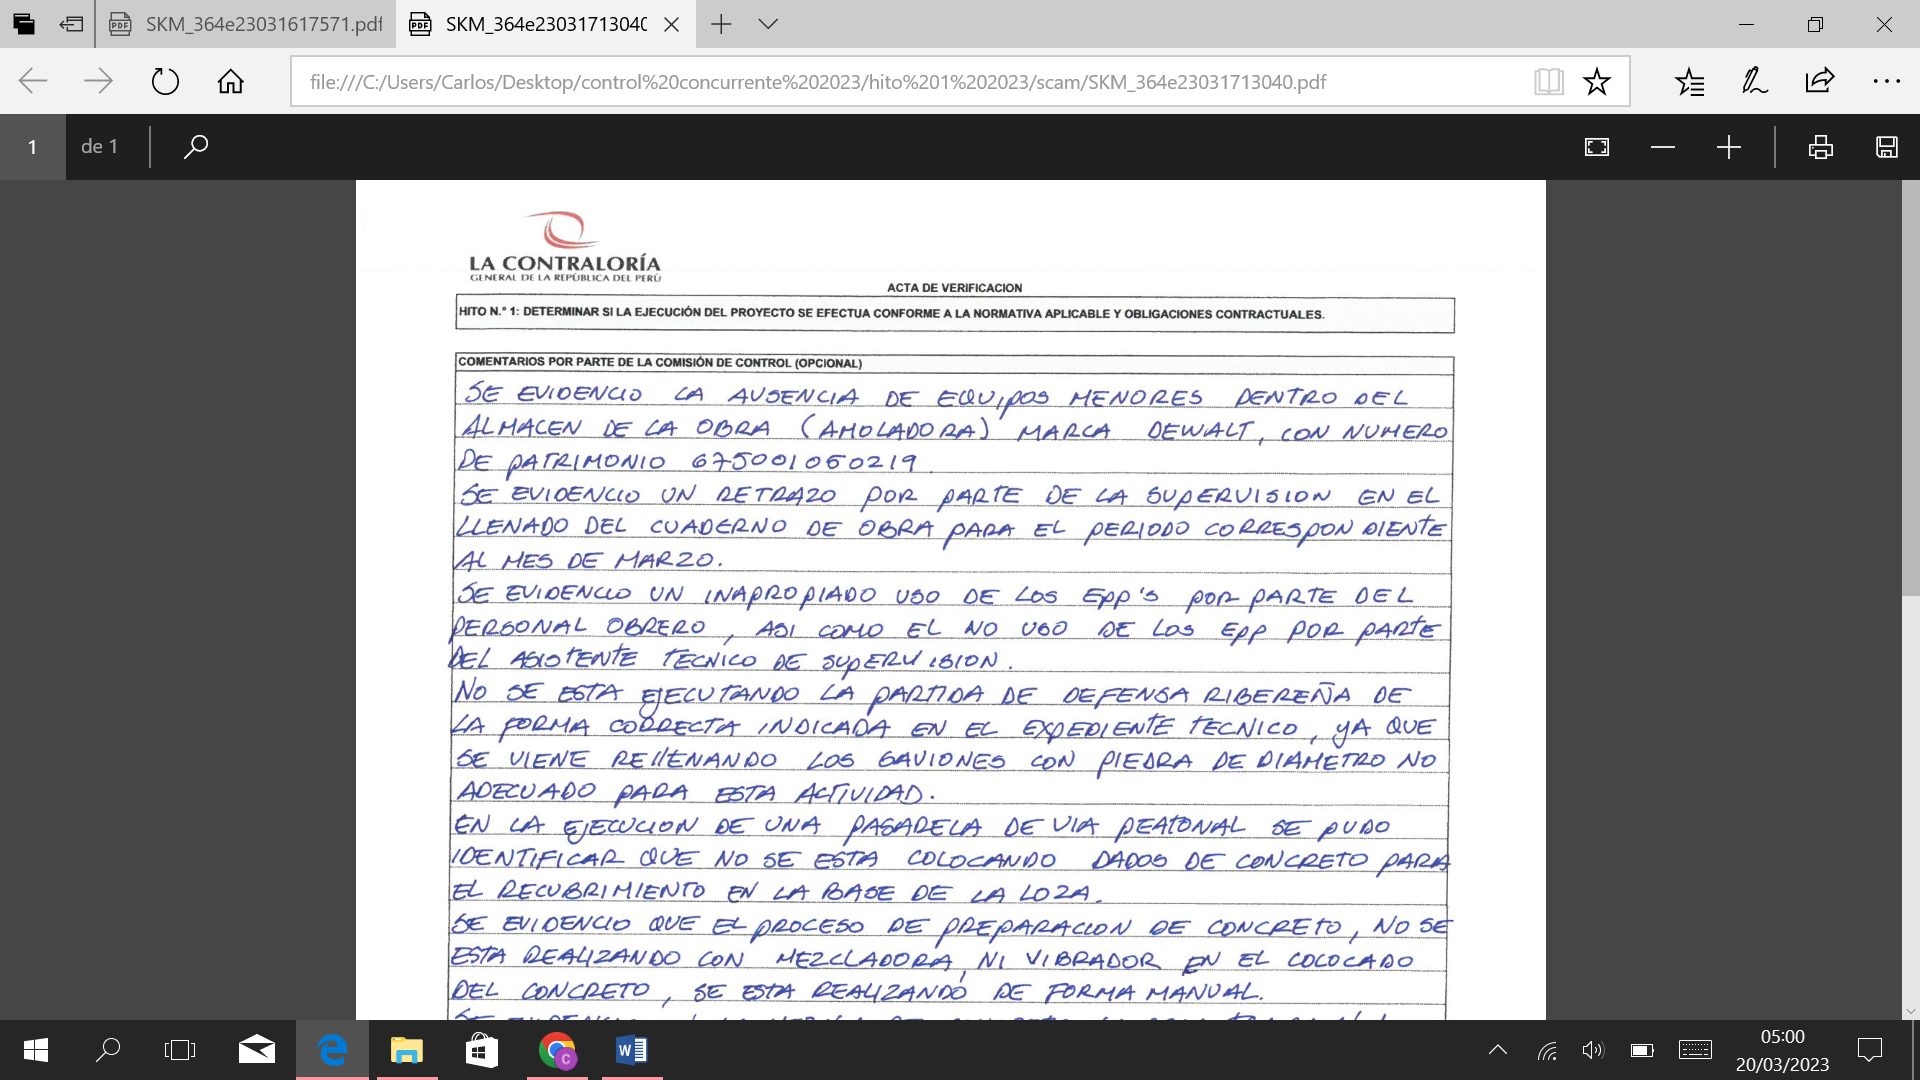 SKM_364e23031617571.pdf
SKM_364e23031713040
file:///C:/Users/Carlos/Desktop/control%20concurrente%202023/hito%201%202023/scam/SKM_364e23031713040.pdf
1 de 1
LA CONTRALORÍA
GENERAL DE LA REPÚBLICA DEL PERÚ
ACTA DE VERIFICACION
HITO N.° 1: DETERMINAR SI LA EJECUCIÓN DEL PROYECTO SE EFECTUA CONFORME A LA NORMATIVA APLICABLE Y OBLIGACIONES CONTRACTUALES.
COMENTARIOS POR PARTE DE LA COMISIÓN DE CONTROL (OPCIONAL)
SE EVIDENCIO LA AUSENCIA DE EQUIPOS MENORES DENTRO DEL
ALMACEN DE LA OBRA (AMOLADORA) MARCA DEWALT, CON NUMERO
DE PATRIMONIO 675001050219.
SE EVIDENCIO UN RETRAZO POR PARTE DE LA SUPERVISION EN EL
LLENADO DEL CUADERNO DE OBRA PARA EL PERIODO CORRESPONDIENTE
AL MES DE MARZO.
SE EVIDENCIO UN INAPROPIADO USO DE LOS EPP'S POR PARTE DEL
PERSONAL OBRERO, ASI COMO EL NO USO DE LOS EPP POR PARTE
DEL ASISTENTE TECNICO DE SUPERVISION.
NO SE ESTA EJECUTANDO LA PARTIDA DE DEFENSA RIBEREÑA DE
LA FORMA CORRECTA INDICADA EN EL EXPEDIENTE TECNICO, YA QUE
SE VIENE RELLENANDO LOS GAVIONES CON PIEDRA DE DIAMETRO NO
ADECUADO PARA ESTA ACTIVIDAD.
EN LA EJECUCION DE UNA PASARELA DE VIA PEATONAL SE PUDO
IDENTIFICAR QUE NO SE ESTA COLOCANDO DADOS DE CONCRETO PARA
EL RECUBRIMIENTO EN LA BASE DE LA LOZA.
SE EVIDENCIO QUE EL PROCESO DE PREPARACION DE CONCRETO, NO SE
ESTA REALIZANDO CON MEZCLADORA, NI VIBRADOR EN EL COLOCADO
DEL CONCRETO, SE ESTA REALIZANDO DE FORMA MANUAL.
05:00
20/03/2023